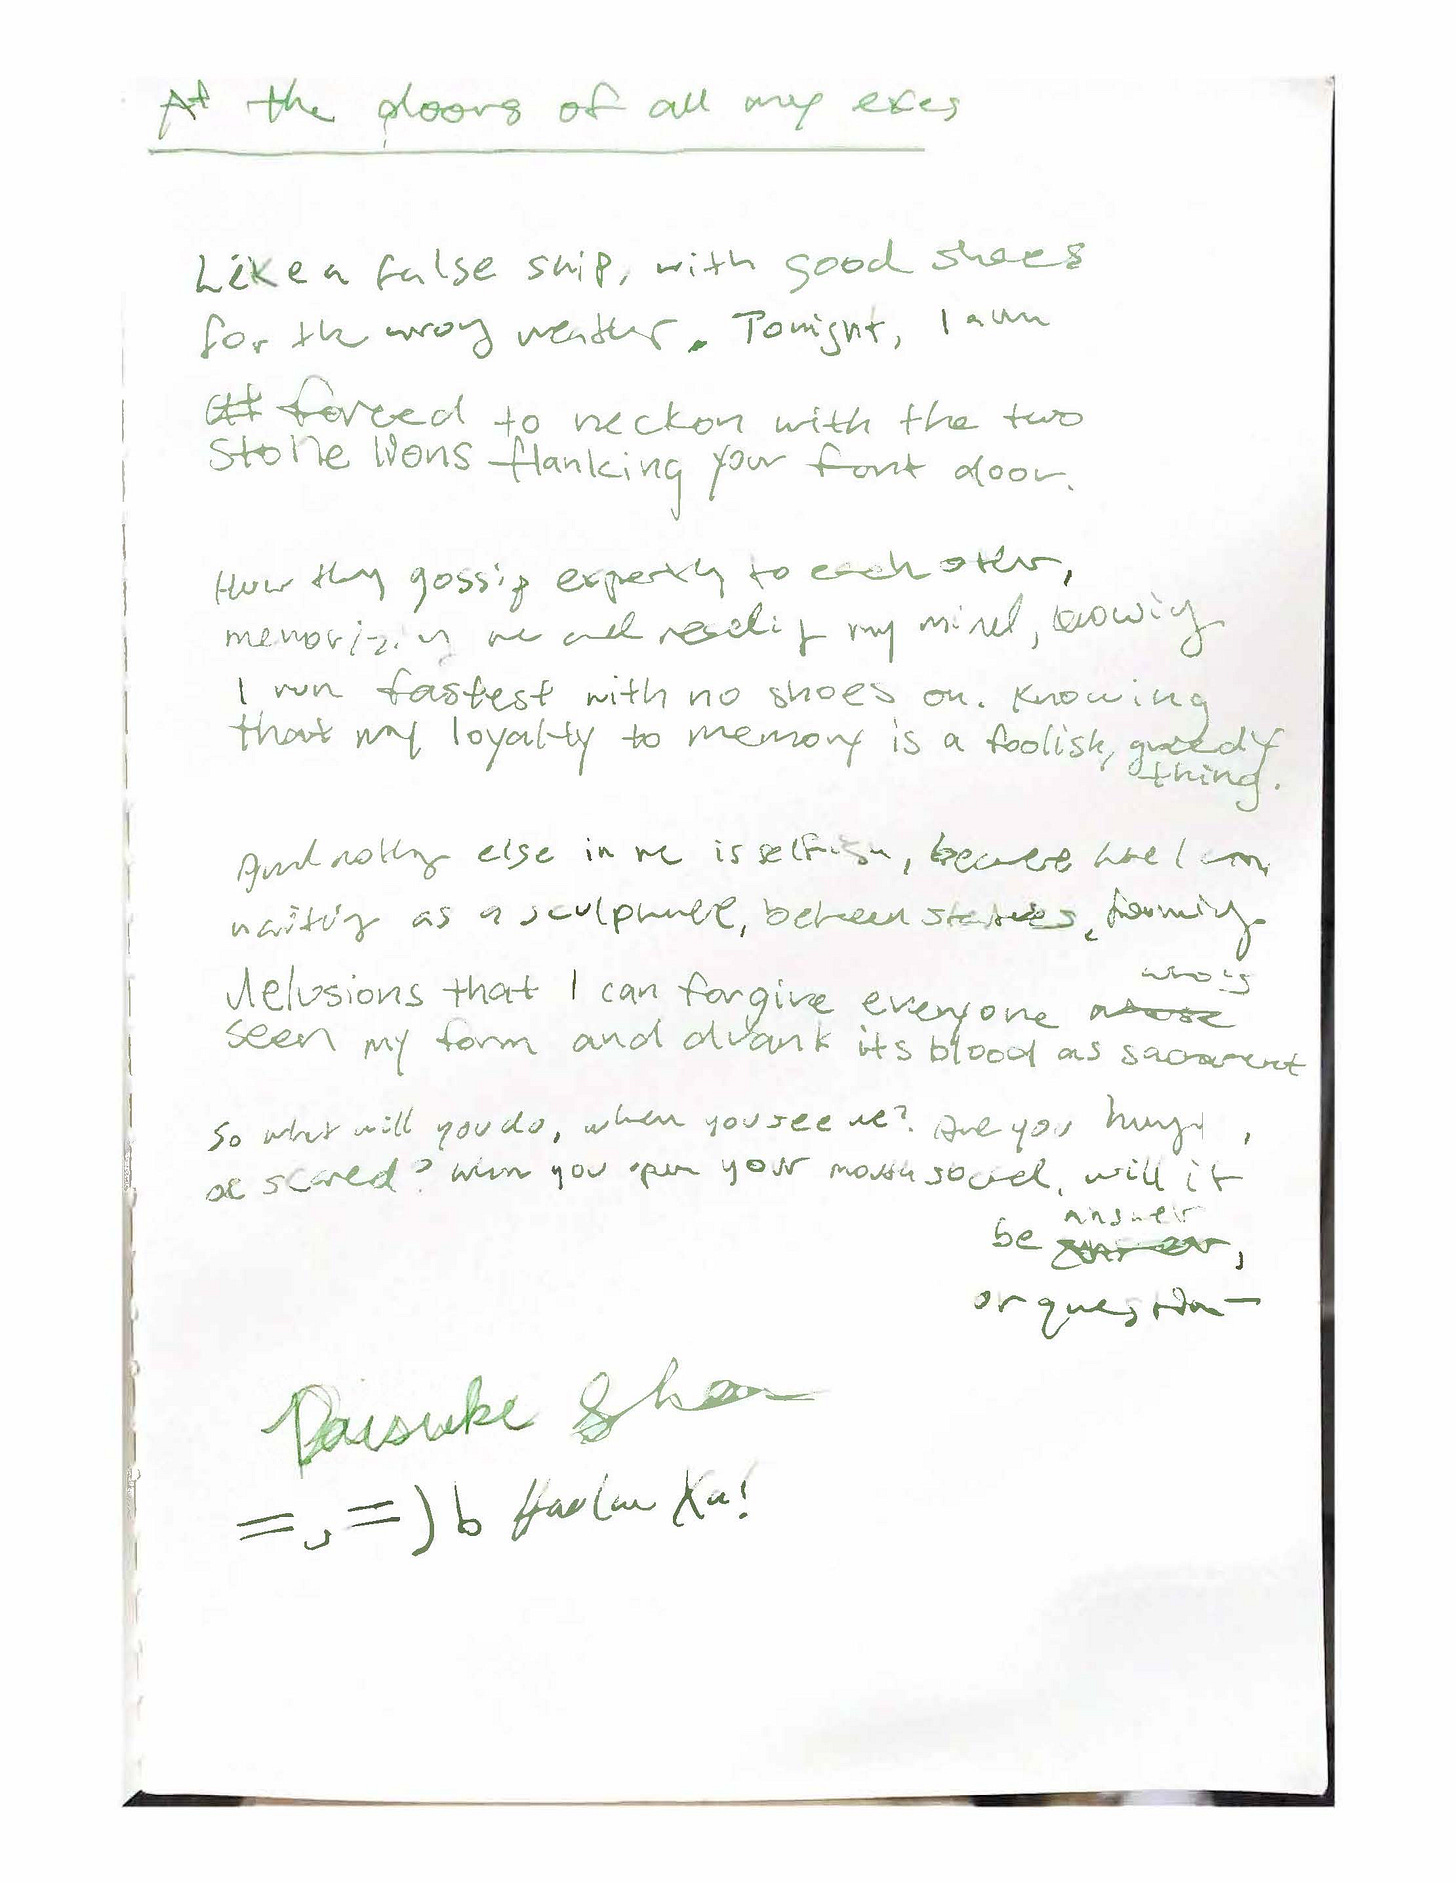 At the doors of all my exes
Like a false ship, with good shoes
for the wrong weather. Tonight, I am
forced to reckon with the two
stone lions flanking your font door.
How they gossip expertly to each other,
memorizing me and reading my mind, knowing
I run fastest with no shoes on. Knowing
that my loyalty to memory is a foolish, greedy
thing.
And nothing else in me is selfish, because here I am
waiting as a sculpture, between statues, forming
who's
delusions that I can forgive everyone
seen my form and drank its blood as sacrament
So what will you do, when you see me? Are you hungry,
or scared? When you open your mouth, will it
answer
be ,
or question—
Daisuke Shen
=,=)b